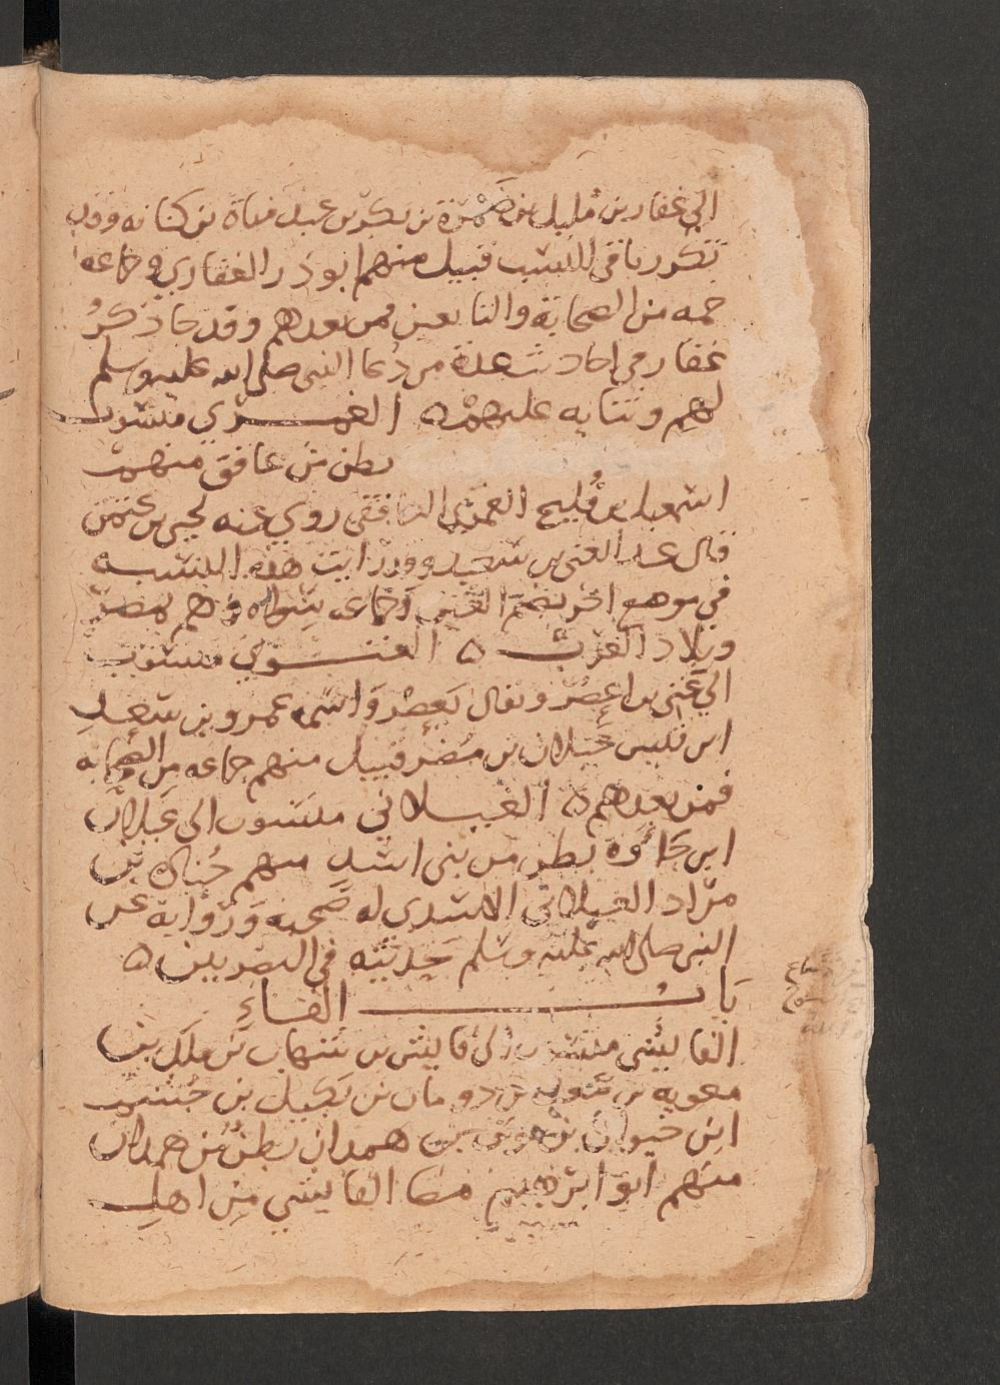 الي غفار بن مليل بن ضَمْرة بن بكر بن عبد مناة بن كنانه وقد
تكرر نا في النسب قبيل منهم ابو ذر الغفاري وجماعه
جمه من الصحابة والتابعين فمن بعدهم وقد جا ذكرُ
غفار في احاد من دُعا النبي صلى الله عليه وسلم
لهم وثنايه عليهم ه الغمري منسوب
بطن من غافق منهم
اسمعيل بن فُليح الغمري الغافقي روي عنه يحيى بن عثمن
قال عبد الغني بن سعيد وقد رايت هذه النسبه
في موضع اخر بضم الغين وجماعه سواه وهم بمصر
وبلاد الغرب ه الغنوي منسوب
الي غني بن اعصُر ويقال يَعصُر واسمه عمرو بن سعد
ابن قيس عيلان بن مُضر قبيل منهم جماعه من الصحابه
فمن بعدهم ه الغيلاني منسوب الى غيلان
ابن جاوة بطن من بني اسد منهم
مرّاد الغيلاني الاسدي له صحبه ورواية عن
النبي صلى الله عليه وسلم حديثه في البصريين ه
بابُ الفاء
الفايشي منسوب الى فايش بن شهاب بن ملك بن
معويه بن دومان بن بكيل بن جُشم
ابن خيوان بن نوف بن همدان بطن من همدان
منهم ابو ابرهيم الفايشي من اهل